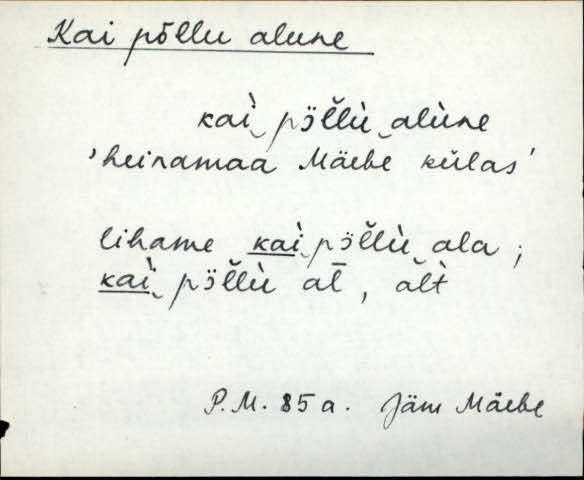 Kai põllu alune
kaì‿pɔ̈l̆lù‿alùne
'heinamaa Mäebe külas'
lihame kaì‿pɔ̈l̆lù‿ala ;
kaì‿pɔ̈l̆lù al̄, al̀t
P.M. 85 a. Jäm Mäebe